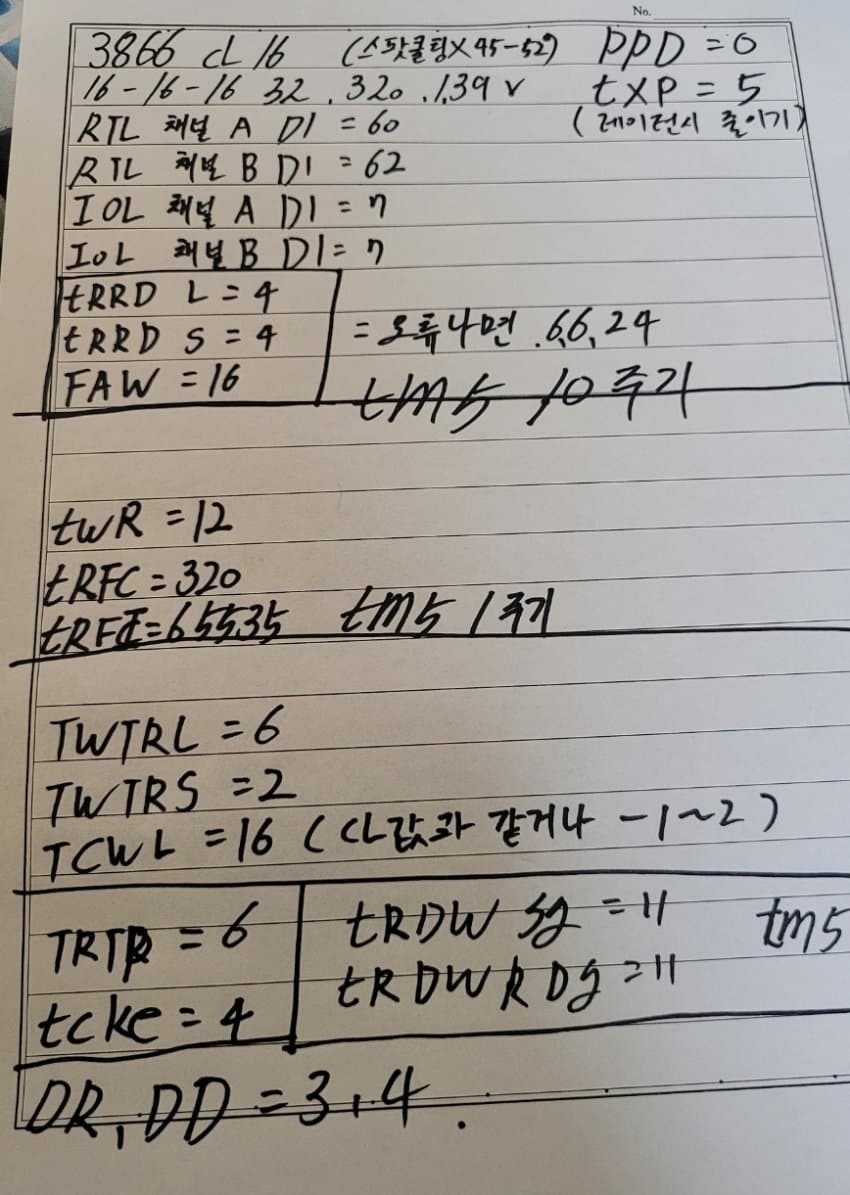 No.
3866 CL 16 (스팟쿨링X 45-52) PPD = 0
16-16-16 32 . 320 . 1.39 v tXP = 5
(레이턴시 줄이기)
RTL 채널 A D1 = 60
RTL 채널 B D1 = 62
IOL 채널 A D1 = 7
IOL 채널 B D1 = 7
tRRD L = 4
tRRD S = 4 = 오류나면 .6,6,24
FAW = 16 tm5 10주기
twR = 12
tRFC = 320
tRFI = 65535 tm5 1주기
TWTRL = 6
TWTRS = 2
TCWL = 16 (CL값과 같거나 -1~2)
TRTP = 6 tRDW Sg = 11 tm5
tcke = 4 tRDWR Dg = 11
DR, DD = 3, 4.